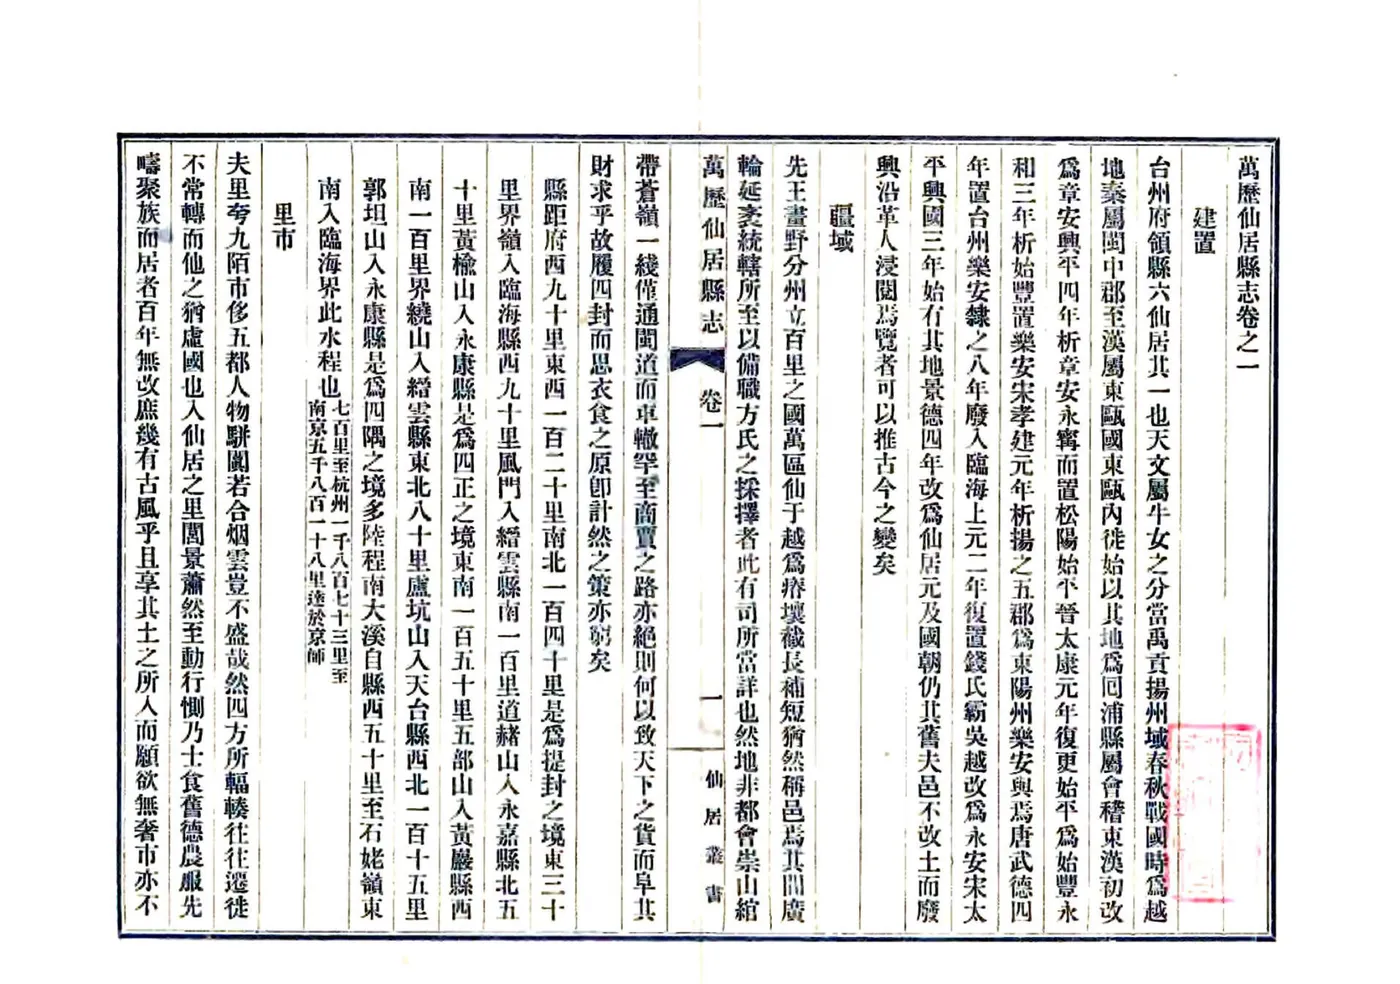 萬歷仙居縣志卷之一
建置
台州府領縣六仙居其一也天文屬牛女之分當禹貢揚州域春秋戰國時爲越
地秦屬閩中郡至漢屬東甌國東甌內徙始以其地爲囘浦縣屬會稽東漢初改
爲章安興平四年析章安永寗而置松陽始平晉太康元年復更始平爲始豐永
和三年析始豐置樂安宋孝建元年析揚之五郡爲東陽州樂安與焉唐武德四
年置台州樂安隸之八年廢入臨海上元二年復置錢氏霸吳越改爲永安宋太
平興國三年始有其地景德四年改爲仙居元及國朝仍其舊夫邑不改土而廢
興沿革人浸閱焉覽者可以推古今之變矣
疆域
先王畫野分州立百里之國萬區仙于越爲瘠壤截長補短猶然稱邑焉其間廣
輪延袤統轄所至以備職方氏之採擇者此有司所當詳也然地非都會崇山綰
萬歷仙居縣志 卷一 一 仙居叢書
帶蒼嶺一綫僅通閩道而車轍罕至商賈之路亦絕則何以致天下之貨而阜其
財求乎故履四封而思衣食之原卽計然之策亦窮矣
縣距府西九十里東西一百二十里南北一百四十里是爲提封之境東三十
里界嶺入臨海縣西九十里風門入縉雲縣南一百里道赭山入永嘉縣北五
十里黃檢山入永康縣是爲四正之境東南一百五十里五部山入黃巖縣西
南一百里界繞山入縉雲縣東北八十里盧坑山入天台縣西北一百十五里
郭坦山入永康縣是爲四隅之境多陸程南大溪自縣西五十里至石姥嶺東
南入臨海界此水程也七百里至杭州一千八百七十三里至
南京五千八百一十八里達於京師
里市
夫里夸九陌市侈五都人物駢闐若合烟雲豈不盛哉然四方所輻輳往往遷徙
不常轉而他之猶虛國也入仙居之里閭景蕭然至動行惻乃士食舊德農服先
疇聚族而居者百年無改庶幾有古風乎且享其土之所入而願欲無奢市亦不